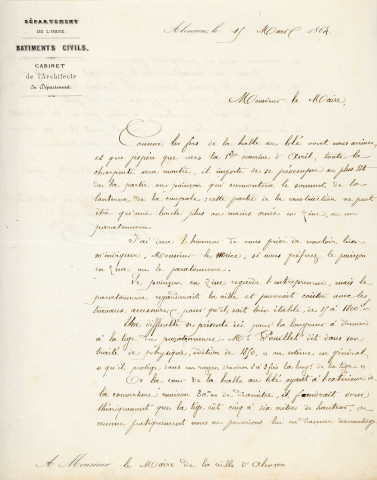 DÉPARTEMENT
DE L'ORNE.
BATIMENTS CIVILS.
CABINET
de l'Architecte
du Département.
Alençon, le 15 Mars 1864.
Monsieur le Maire,
Comme les fers de la halle au blé vont nous arriver,
et que vers la 1ère semaine d'Avril, toute la
charpente sera montée, il importe de se préoccuper au plus tôt
de la partie en poinçon qui surmontera le sommet de la
lanterne de la coupole; cette partie de la construction ne peut
être qu'une plus ou moins ornée en zinc, ou un
paratonnerre.
J'ai donc l'honneur de vous prier de vouloir bien
m'indiquer, Monsieur le Maire, si vous préférez le poinçon
en zinc ou le paratonnerre.
Le poinçon en zinc regarde l'entrepreneur, mais le
paratonnerre regarderait la ville et pourrait coûter avec les
travaux accessoires, pour qu'il soit bien établi, de 15 à 1800f.
Une difficulté se présente ici pour la longueur à donner
à la tige du paratonnerre. Mr Pouillet dit dans son
traité de physique, édition de 1850, « on estime, en général,
« qu'il protège dans un rayon environ à 2 fois la long. de la tige. »
Or la cour de la halle au blé ayant à l'extérieur de
la couverture environ 30m de diamètre, il faudrait donc
théoriquement que la tige eût cinq à six mètres de hauteur, ou
même pratiquement nous ne pouvons lui en donner davantage
A Monsieur le Maire de la ville d'Alençon